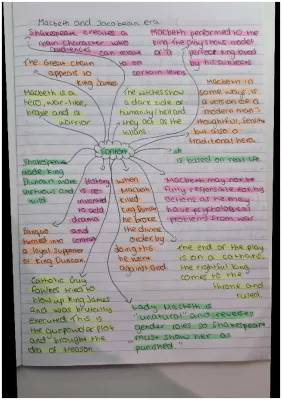 Macbeth and Jacobean era
Shakespeare creates a
main character who
audiences can
Macbeth performed to the
king. The play shows model
of a perfect king loved
by his subjects
The Great chain
appears to
King James
is on
certain levels
Macbeth is a
hero, war-like,
brave and a
warrior
The witches show
a dark side of
humanity (hell) and
they act as the
villains
Macbeth in
some ways is
a version of a
modern man:
thoughtful, sensitive
but also a
traditional hero.
context
is based on real life
Shakespeare
made King
Duncan more
virtuous and
mild
History
is re-
invented
to add
drama
and
context
when
Macbeth
killed
King Duncan
he broke
the divine
order by
doing this
he went
against God
Macbeth may not be
fully responsible for his
actions as he may
have psychological
problems from war.
Banquo
turned into
a loyal supporter
of King Duncan.
The end of the play
is on a catharsis,
the rightful king
comes to the
throne and
ruled.
Catholic Guy
Fawkes tried to
blow up King James
and was brutally
executed. This is
the gunpowder plot
and "brought the
era of treason.
Lady Macbeth is
"unnatural" and reverses
gender roles so Shakespeare
must show her as
punished."